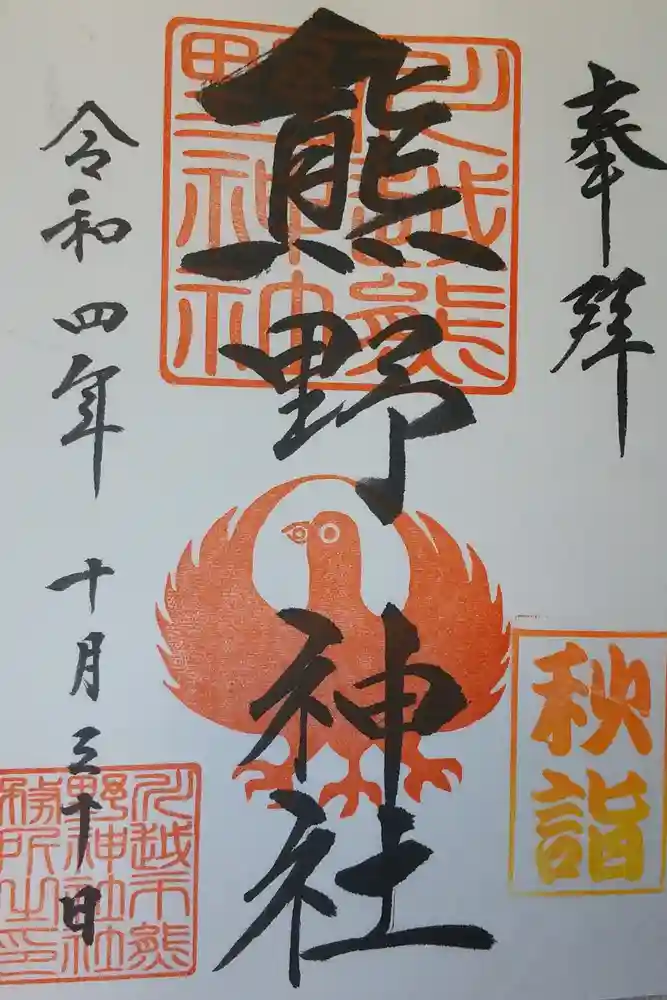 奉拝
川越熊
野神社
熊野神社
秋詣
令和四年 十月三十日
川越市熊
野神社社
務所之印